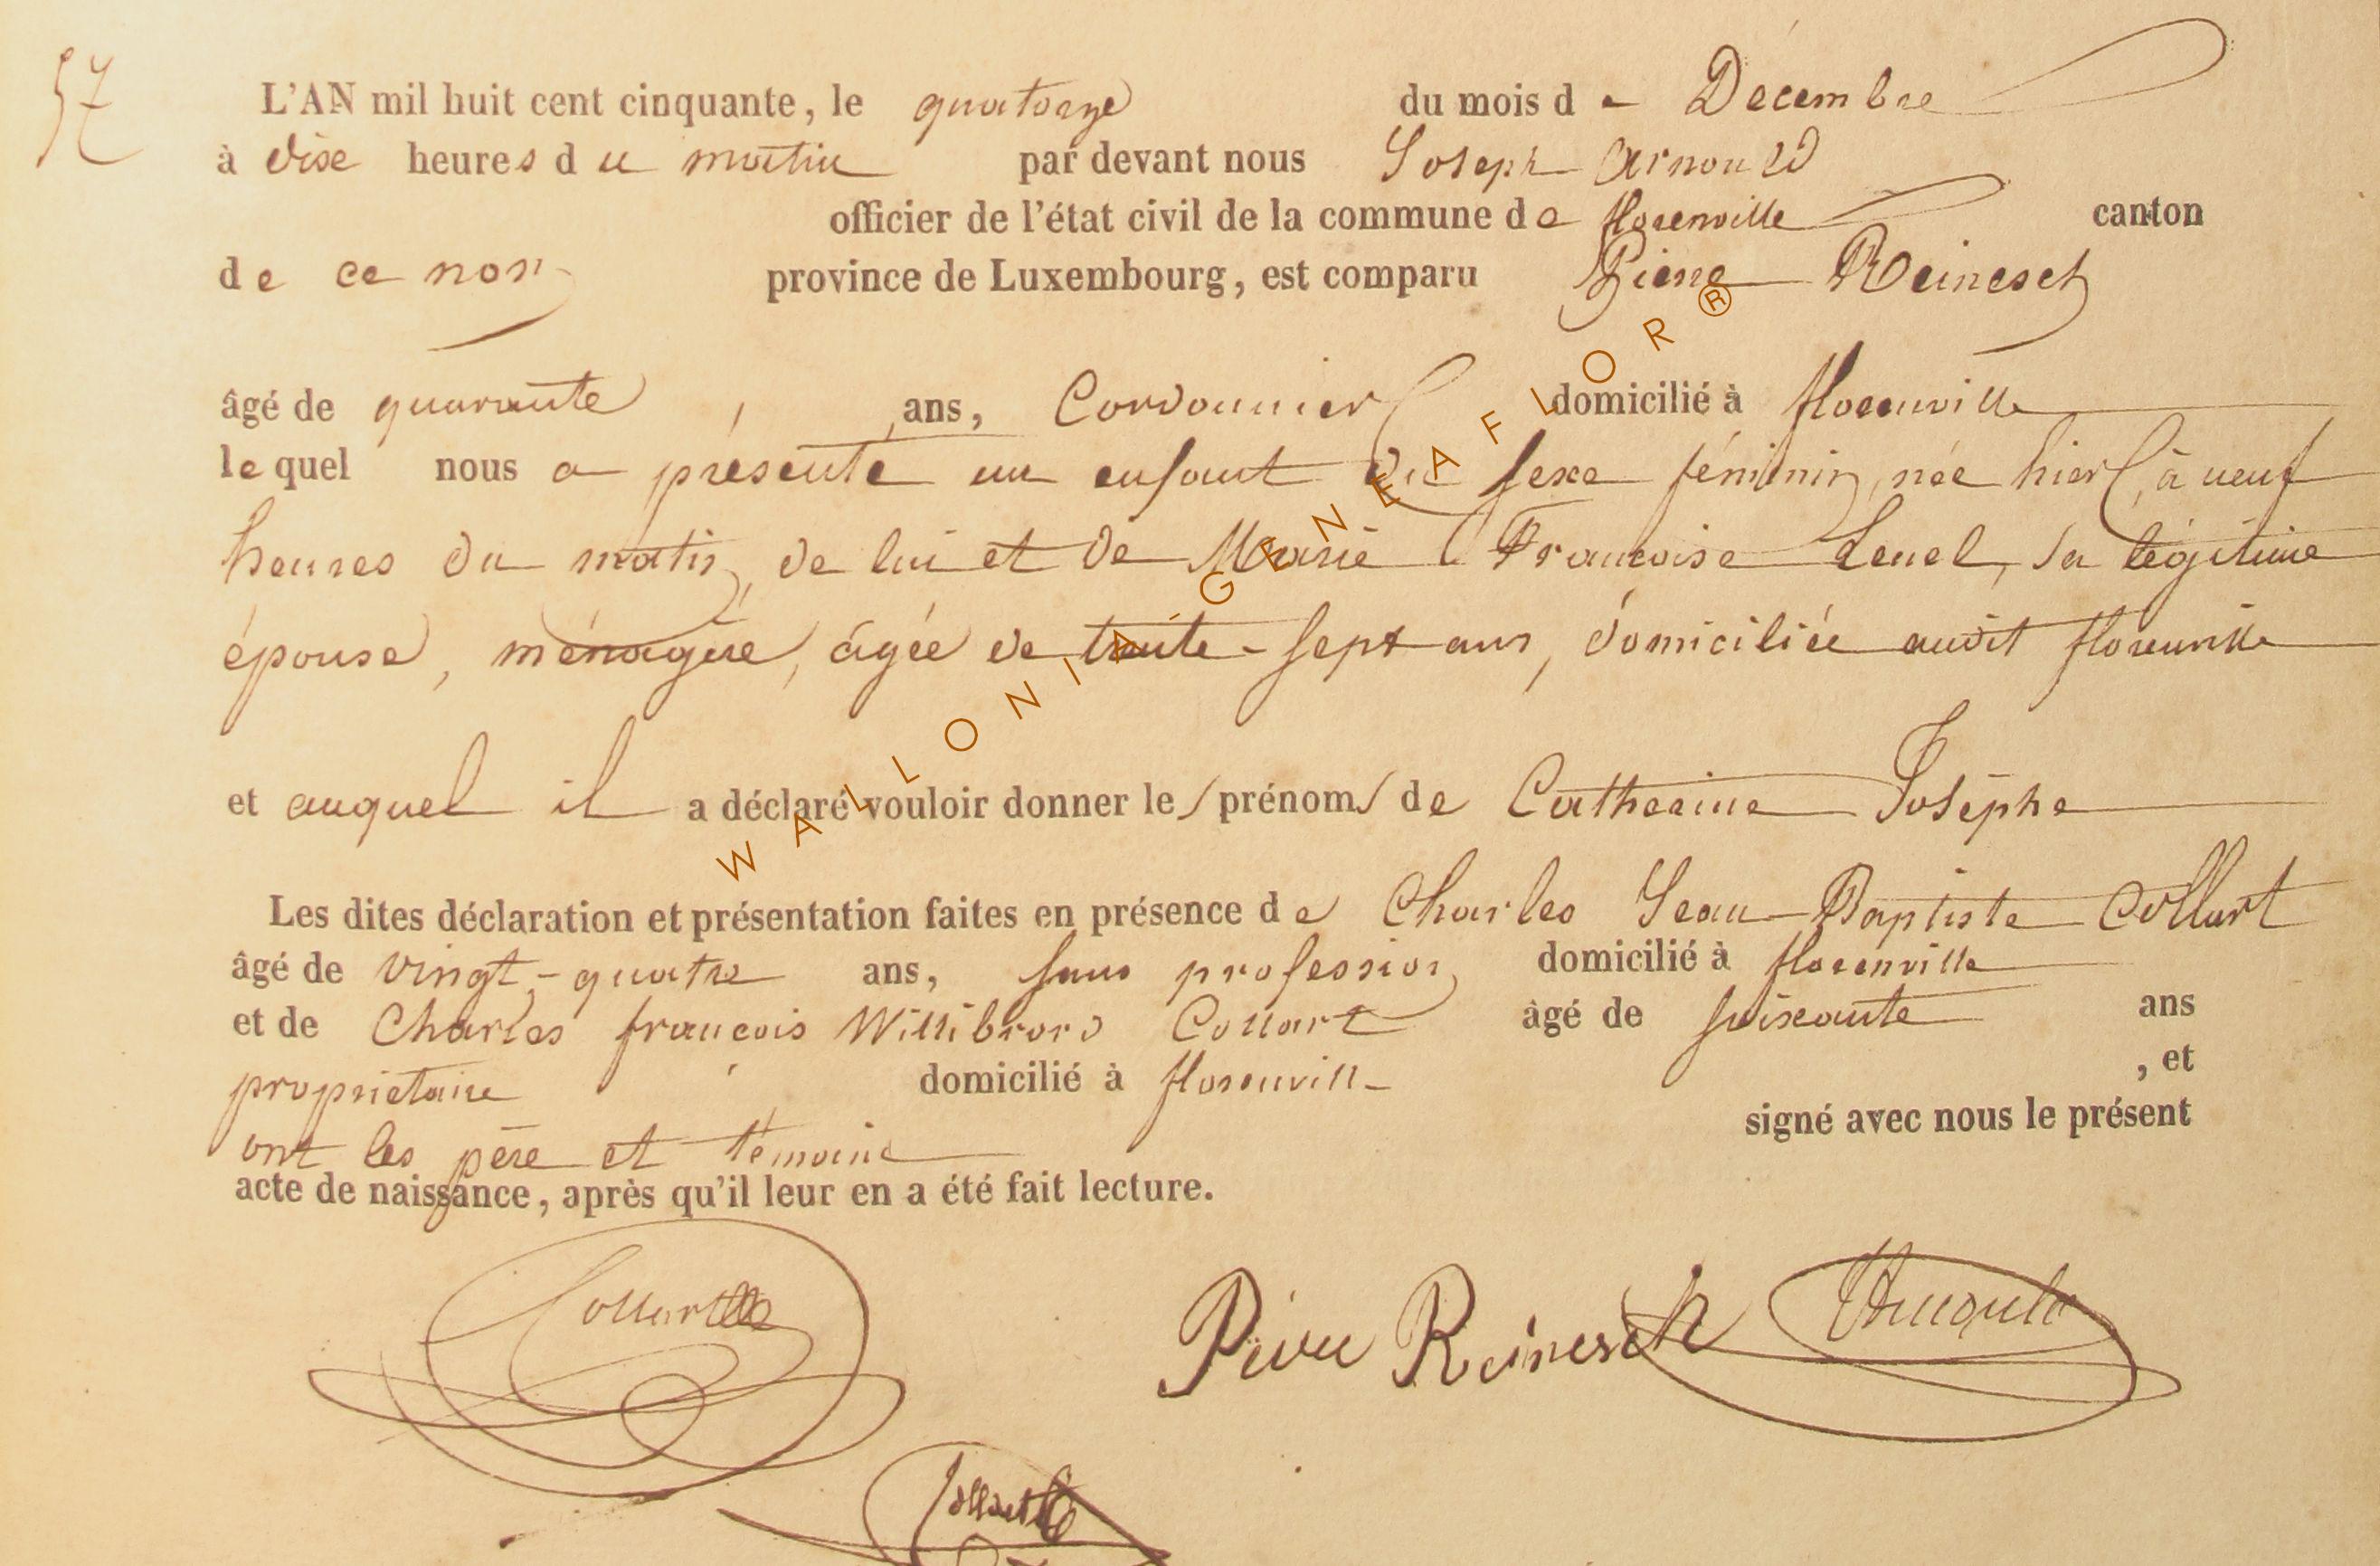 57
L'AN mil huit cent cinquante, le quatorze du mois de Décembre
à dixe heures du matin par devant nous Joseph Arnould
officier de l'état civil de la commune de florenville canton
de ce nom province de Luxembourg, est comparu Pierre Reinesch
âgé de quarante ans, Cordonnier domicilié à florenville
lequel nous a présenté un enfant du sexe féminin, née hier, à neuf
heures du matin, de lui et de Marie Françoise sa légitime
épouse, ménagère, âgée de trente-sept ans, domiciliée audit florenville
et auquel il a déclaré vouloir donner les prénoms de Catherine Josèphe
Les dites déclaration et présentation faites en présence de Charles Jean-Baptiste Collart
âgé de vingt-quatre ans, sans profession domicilié à florenville
et de Charles françois Willibrord Collart âgé de soixante ans
propriétaire domicilié à florenville , et
ont les père et témoins signé avec nous le présent
acte de naissance, après qu'il leur en a été fait lecture.
Collart
Pierre Reinesch
Arnould
Collart
WALLONIA-GENEAFLOR®